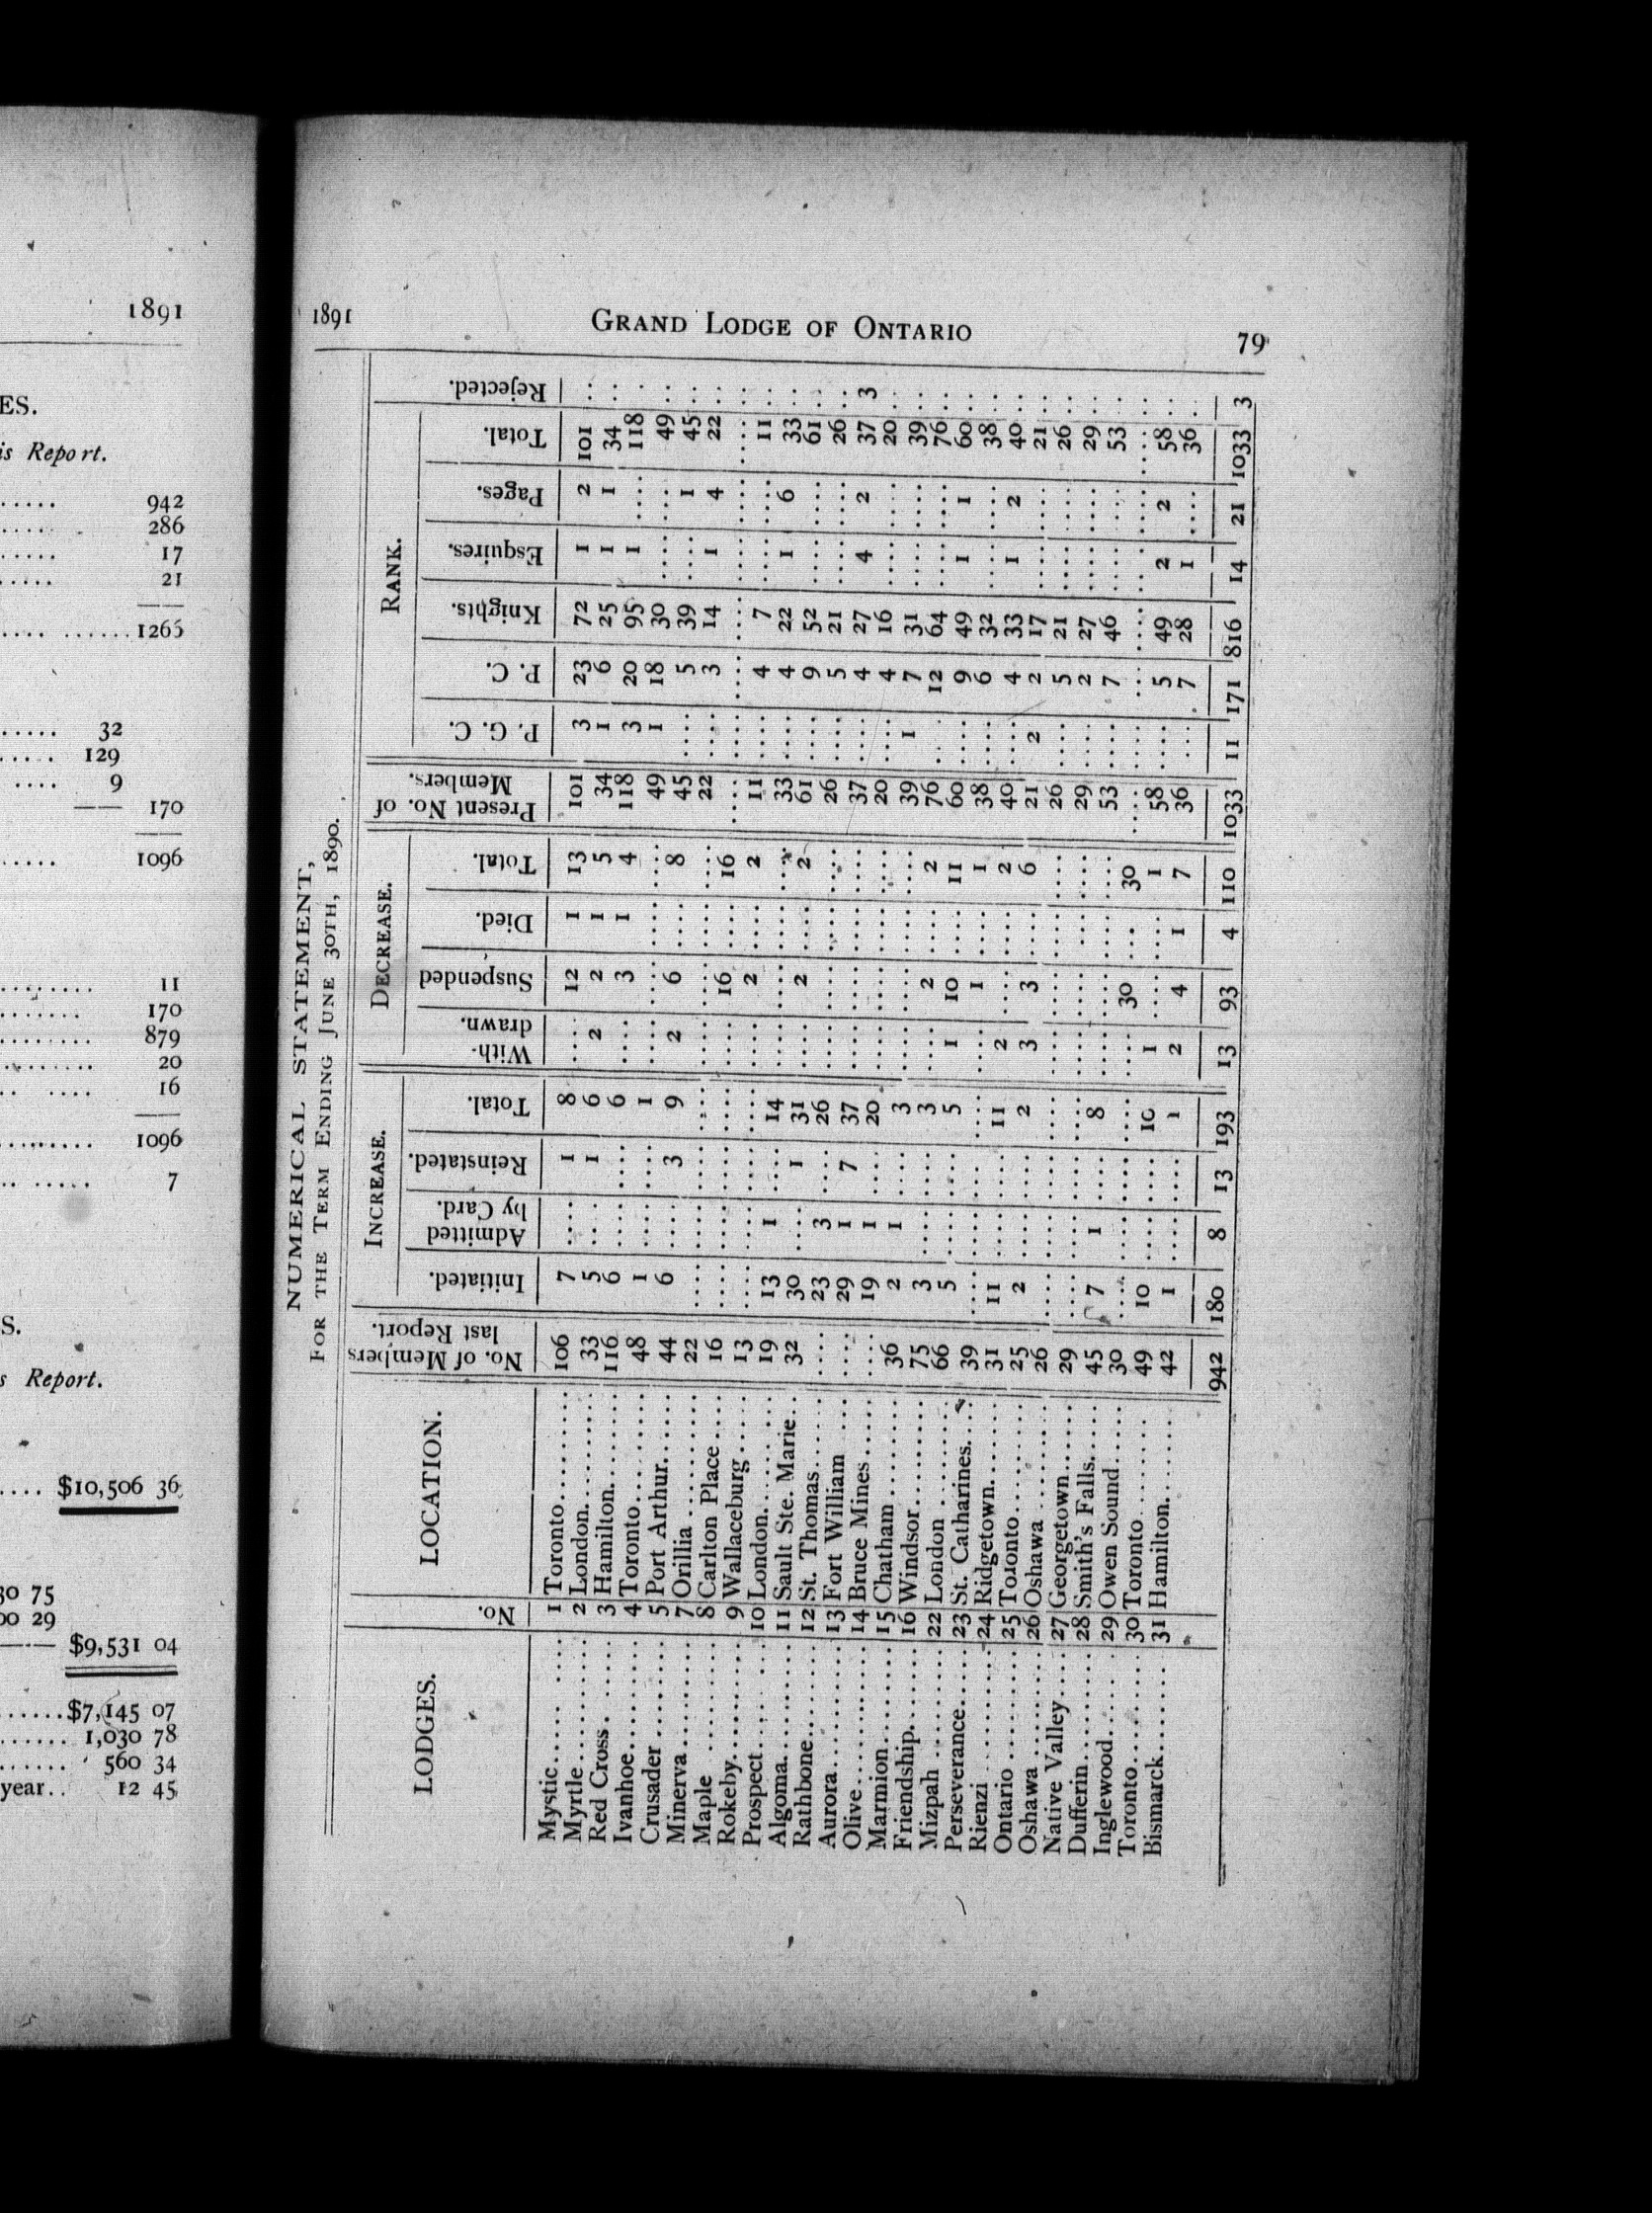 1891
ES.
is Report.
..... 942
..... 286
..... 17
..... 21
.... ......1265
..... 32
..... 129
.... 9
170
..... 1096
........ 11
....... 170
......... 879
......... 20
.. .... 16
......... 1096
.. ..... 7
S.
s Report.
.... $10,506 36
30 75
00 29
$9,531 04
......$7,145 07
...... 1,030 78
...... 560 34
year.. 12 45
1891 GRAND LODGE OF ONTARIO 79
NUMERICAL STATEMENT,
FOR THE TERM ENDING JUNE 30TH, 1890.
LODGES. No. LOCATION. No. of Members last Report. INCREASE. DECREASE. Present No. of Members. RANK. Rejected.
Initiated. Admitted by Card. Reinstated. Total. With-drawn. Suspended Died. Total. P. G. C. P. C. Knights. Esquires. Pages. Total.
Mystic 1 Toronto 106 7 .... 1 8 .... 12 1 13 101 3 23 72 1 2 101 ..
Myrtle 2 London 33 5 .... 1 6 2 2 1 5 34 1 6 25 1 1 34 ..
Red Cross 3 Hamilton 116 6 .... .... 6 .... 3 1 4 118 3 20 95 1 .... 118 ..
Ivanhoe 4 Toronto 48 1 .... .... 1 .... .... .... .... 49 1 18 30 .... .... 49 ..
Crusader 5 Port Arthur 44 6 .... 3 9 2 6 .... 8 45 .... 5 39 .... 1 45 ..
Minerva 7 Orillia 22 .... .... .... .... .... .... .... .... 22 .... 3 14 1 4 22 ..
Maple 8 Carlton Place 16 .... .... .... .... .... 16 .... 16 .... .... .... .... .... .... .... ..
Rokeby 9 Wallaceburg 13 .... .... .... .... .... 2 .... 2 11 .... 4 7 .... .... 11 ..
Prospect 10 London 19 13 1 .... 14 .... .... .... .... 33 .... 4 22 1 6 33 ..
Algoma 11 Sault Ste. Marie 32 30 .... 1 31 .... 2 .... 2 61 .... 9 52 .... .... 61 ..
Rathbone 12 St. Thomas .... 23 3 .... 26 .... .... .... .... 26 .... 5 21 .... .... 26 ..
Aurora 13 Fort William .... 29 1 7 37 .... .... .... .... 37 .... 4 27 4 2 37 3
Olive 14 Bruce Mines .... 19 1 .... 20 .... .... .... .... 20 .... 4 16 .... .... 20 ..
Marmion 15 Chatham 36 2 1 .... 3 .... .... .... .... 39 1 7 31 .... .... 39 ..
Friendship 16 Windsor 75 3 .... .... 3 .... 2 .... 2 76 .... 12 64 .... .... 76 ..
Mizpah 22 London 66 5 .... .... 5 1 10 .... 11 60 .... 9 49 1 1 60 ..
Perseverance 23 St. Catharines 39 .... .... .... .... .... 1 .... 1 38 .... 6 32 .... .... 38 ..
Rienzi 24 Ridgetown 31 11 .... .... 11 2 .... .... 2 40 .... 4 33 1 2 40 ..
Ontario 25 Toronto 25 2 .... .... 2 3 3 .... 6 21 2 2 17 .... .... 21 ..
Oshawa 26 Oshawa 26 .... .... .... .... .... .... .... .... 26 .... 5 21 .... .... 26 ..
Native Valley 27 Georgetown 29 .... .... .... .... .... .... .... .... 29 .... 2 27 .... .... 29 ..
Dufferin 28 Smith's Falls 45 7 1 .... 8 .... .... .... .... 53 .... 7 46 .... .... 53 ..
Inglewood 29 Owen Sound 30 .... .... .... .... .... 30 .... 30 .... .... .... .... .... .... .... ..
Toronto 30 Toronto 49 10 .... .... 10 1 .... .... 1 58 .... 5 49 2 2 58 ..
Bismarck 31 Hamilton 42 1 .... .... 1 2 4 1 7 36 .... 7 28 1 .... 36 ..
942 180 8 13 193 13 93 4 110 1033 11 171 816 14 21 1033 3